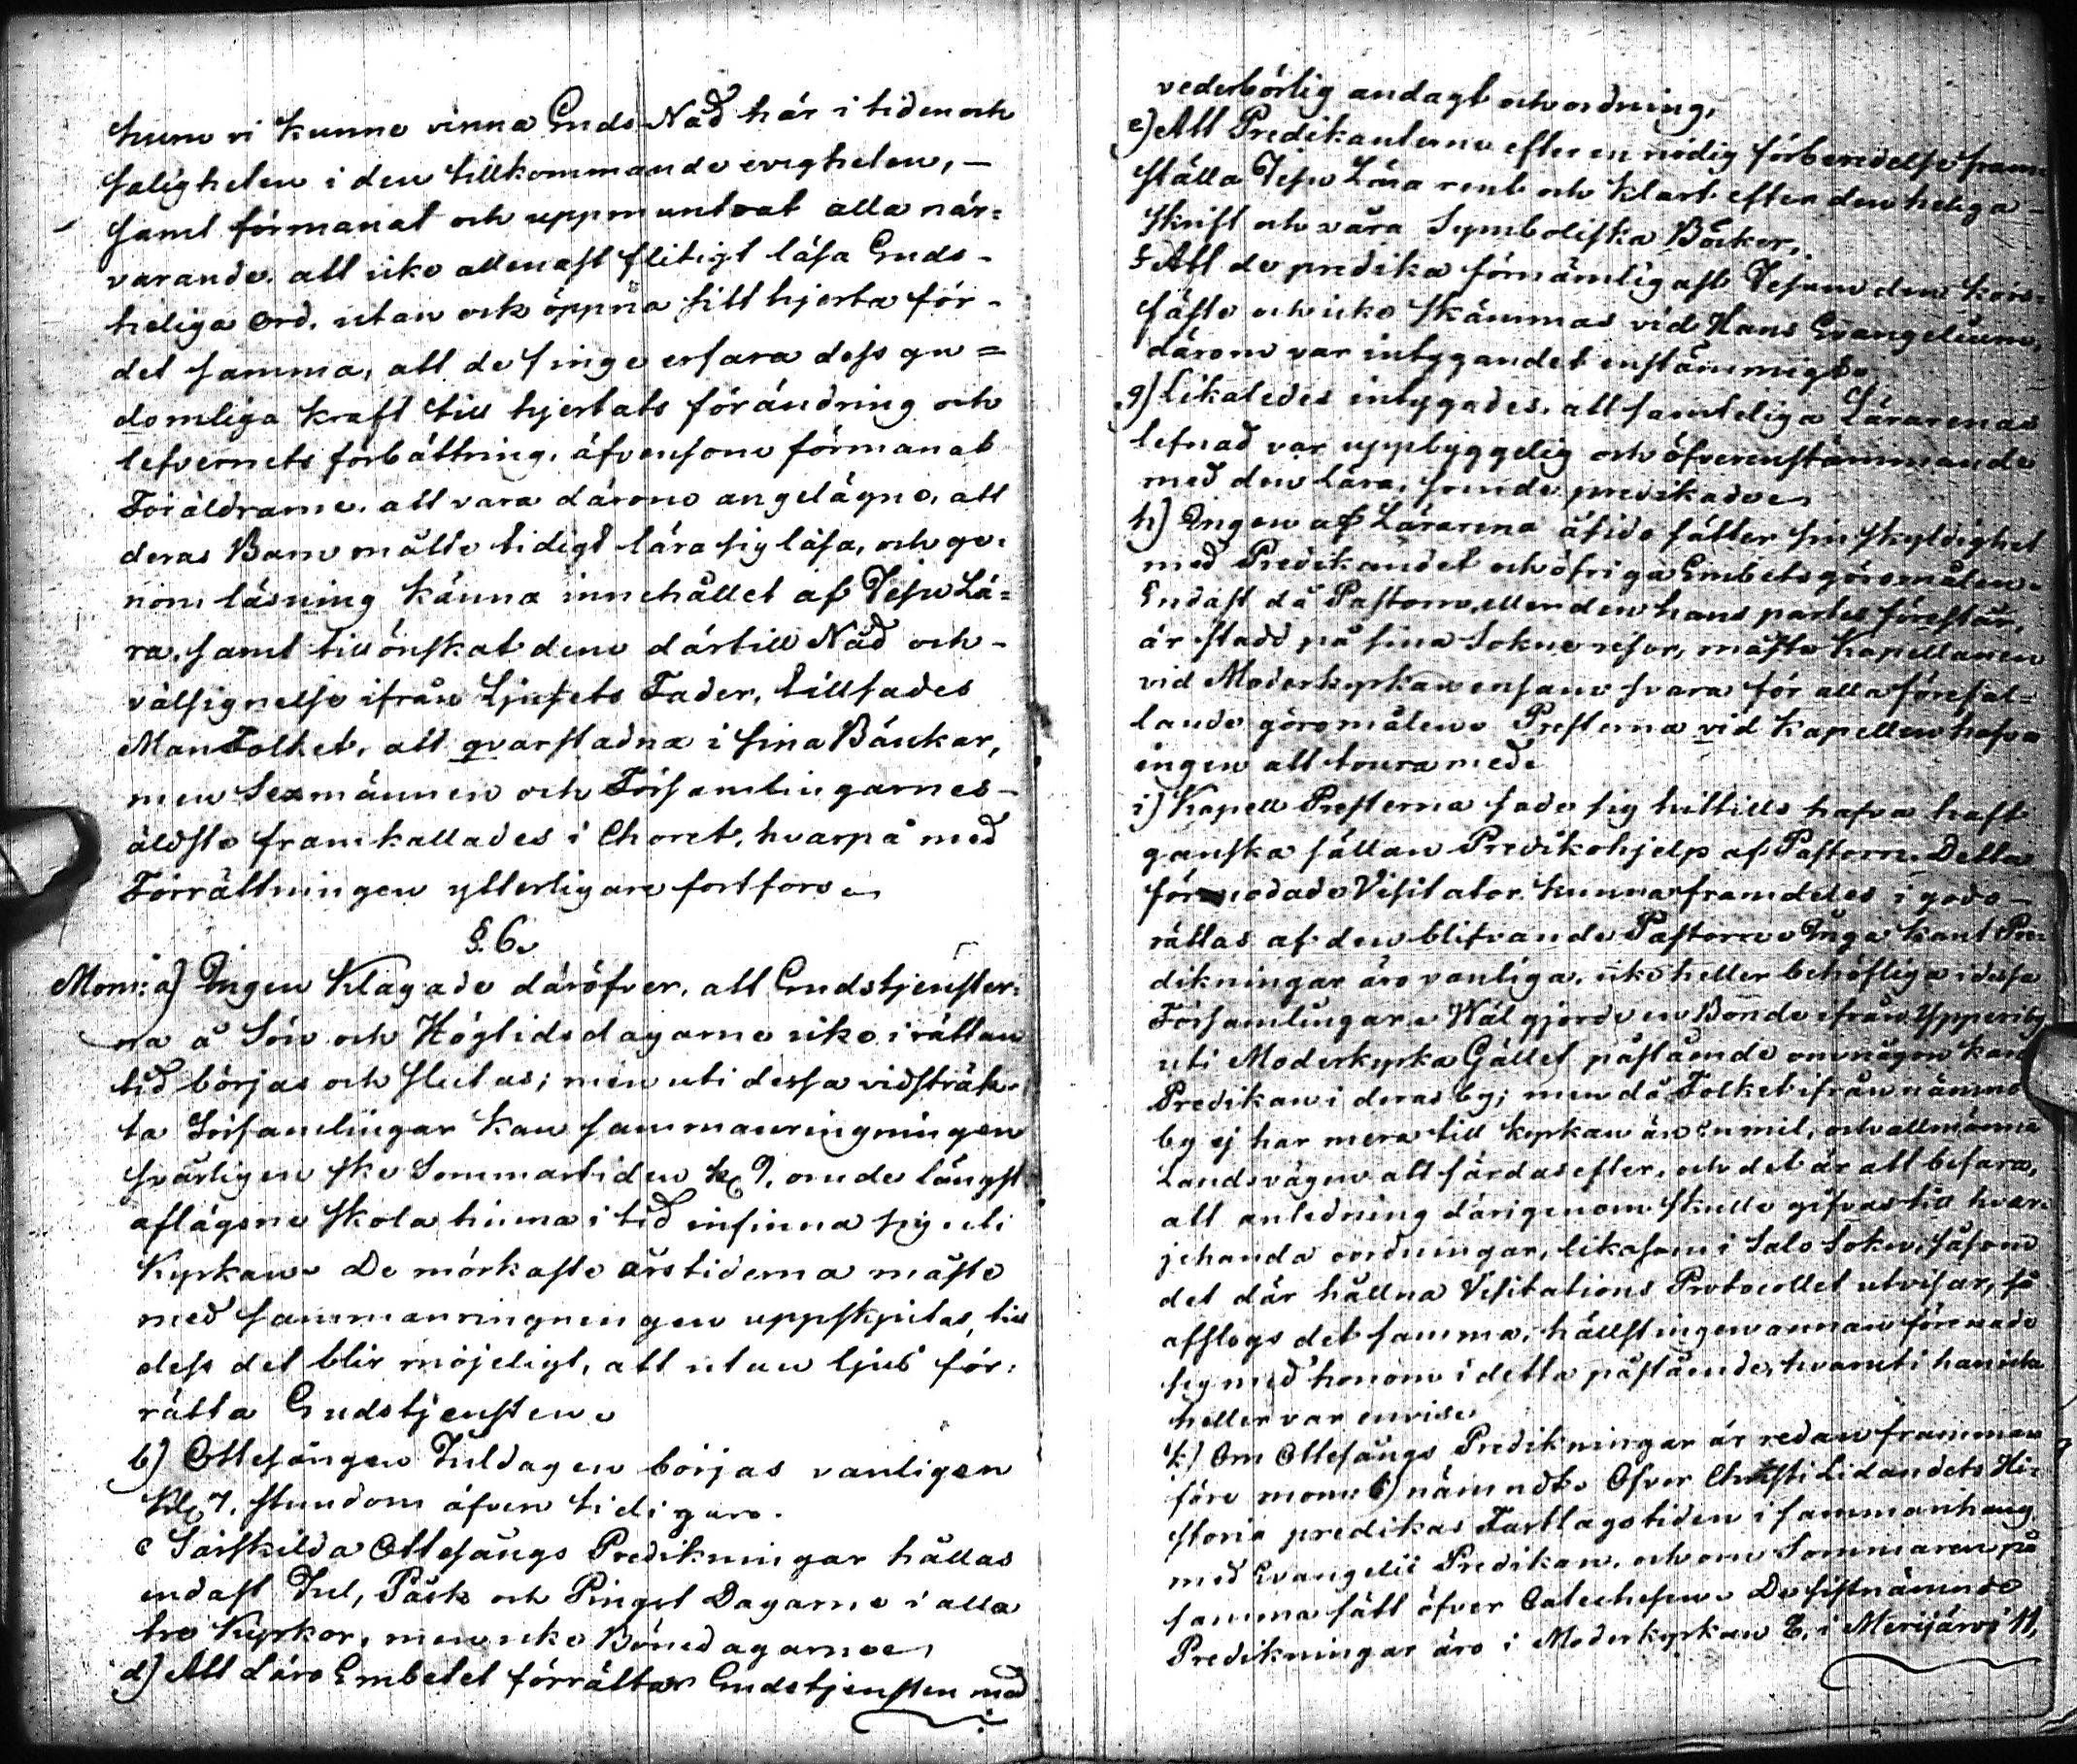 hurn vi kunne vinna Guds Nåd här i tiden och
saligheten i den tillkommande evigheten, –
samt förmanat och uppmuntrat alla när=
varande, att icke allenast flitigt läsa Guds –
heliga Ord, utan ock öppna sitt hjerta för –
det samma, att de finge erfara dess gu=
domliga kraft till hjertats förändring och
lefvernets förbättring, äfvensom förmanat
Föräldrarne, att vara därom angelägne, att
deras Barn måtte tidigt lära sig läsa, och ge=
nom läsning känna innehållet af Jesu Lä=
ra, samt tillönskat dem därtill Nåd och –
välsignelse ifrån Ljusets Fader, tillsades
ManFolket, att qvarstadna i sina Bänkar,
men Sexmännen och Församlingarnes –
äldste framkallades i Choret, hvarpå med
Förrättningen ytterligare fortfors.
§. 6.
Mom: a) Ingen klagade däröfver, att Gudstjenster=
na å Sön och Högtidsdagarne icke i rättan
tid börjas och slutas; men uti dessa vidsträk=
ta Församlingar kan sammanringningen
svårligen ske Sommartiden kl 9, om de längst
aflägsne skola hinna i tid infinna sig uti
Kyrkan. De mörkaste årstiderna måste
med sammanringningen uppskjutas, till
dess det blir möjeligt, att utan ljus för=
rätta Gudstjensten.
b) Ottesången Juldagen börjas vanligen
Kl 7. stundom äfven tidigare.
c Särskilda Ottesångs Predikningar hållas
endast Jul, Påsk och Pingst Dagarne i alla
tre Kyrkor, men icke Bönedagarne.
d) Att Läro Embetet förrättar Gudstjensten med
vederbörlig andagt och ordning,
e) Att Predikanterne efter en nödig förberedelse fram=
ställa Jesu Lära rent och klart efter den heliga –
Skrift och våra Symboliska Böcker,
f Att de predika förnämligast Jesum den kors=
fäste och icke skämmas vid Hans Evangelium,
därom var intygandet enstämmigt.
g) Likaledes intygades, att samteliga Lärarenas
lefnad var uppbyggelig och öfverenstämmande
med den lära, som de predikade.
h) Ingen af Lärarena åsido sätter sin skyldighet
med Predikandet och öfriga Embetsgöromålen.
Endast då Pastorn, eller den hans partes förestår,
är stadd på sina Sokne resor, måste Kapellanen
vid Moderkyrkan ensam svara för alla förefal=
lande göromålen. Presterna vid Kapellen hafva
ingen att tourra med.
i) Kapell Presterna sade sig hittills hafva haft
ganska sällan Predikohjelp af Pastorn. Detta
förmodade Visitator kunna framdeles i godo –
rättas af den blifvande Pastorn. Inga kant Pre=
dikningar äro vanliga, icke heller behöfliga i dessa
Församlingar. Wäl gjorde en Bonde ifrån Ypperiby
uti Moderkyrka Gället påstående om någon kant
Predikan i deras by; men då Folket ifrån nämnde
by ej har mera till kyrkan än en mil, och allmänna
Landsvägen att färdas efter, och det är att befara,
att anledning därigenom skulle gifvas till hvar=
jehanda oordningar, likasom i Salo Sokn, såsom
det där hållna Visitations Protocollet utvisar, så
afslogs det samma, hällst ingen annan förenade
sig med honom i detta påstående, hvaruti han icke
heller var envis.
k) Om Ottesångs Predikningar är redan framman
före mom b) nämndt. Ofver Christi Lidandets Hi=
storia predikas Fastlagstiden i sammanhang
med Evangelii Predikan, och om Sommaren på
samma sätt öfver Catechesen. De sistnämnde
Predikningar äro i Moderkyrkan 8, i Merijärvi 11,